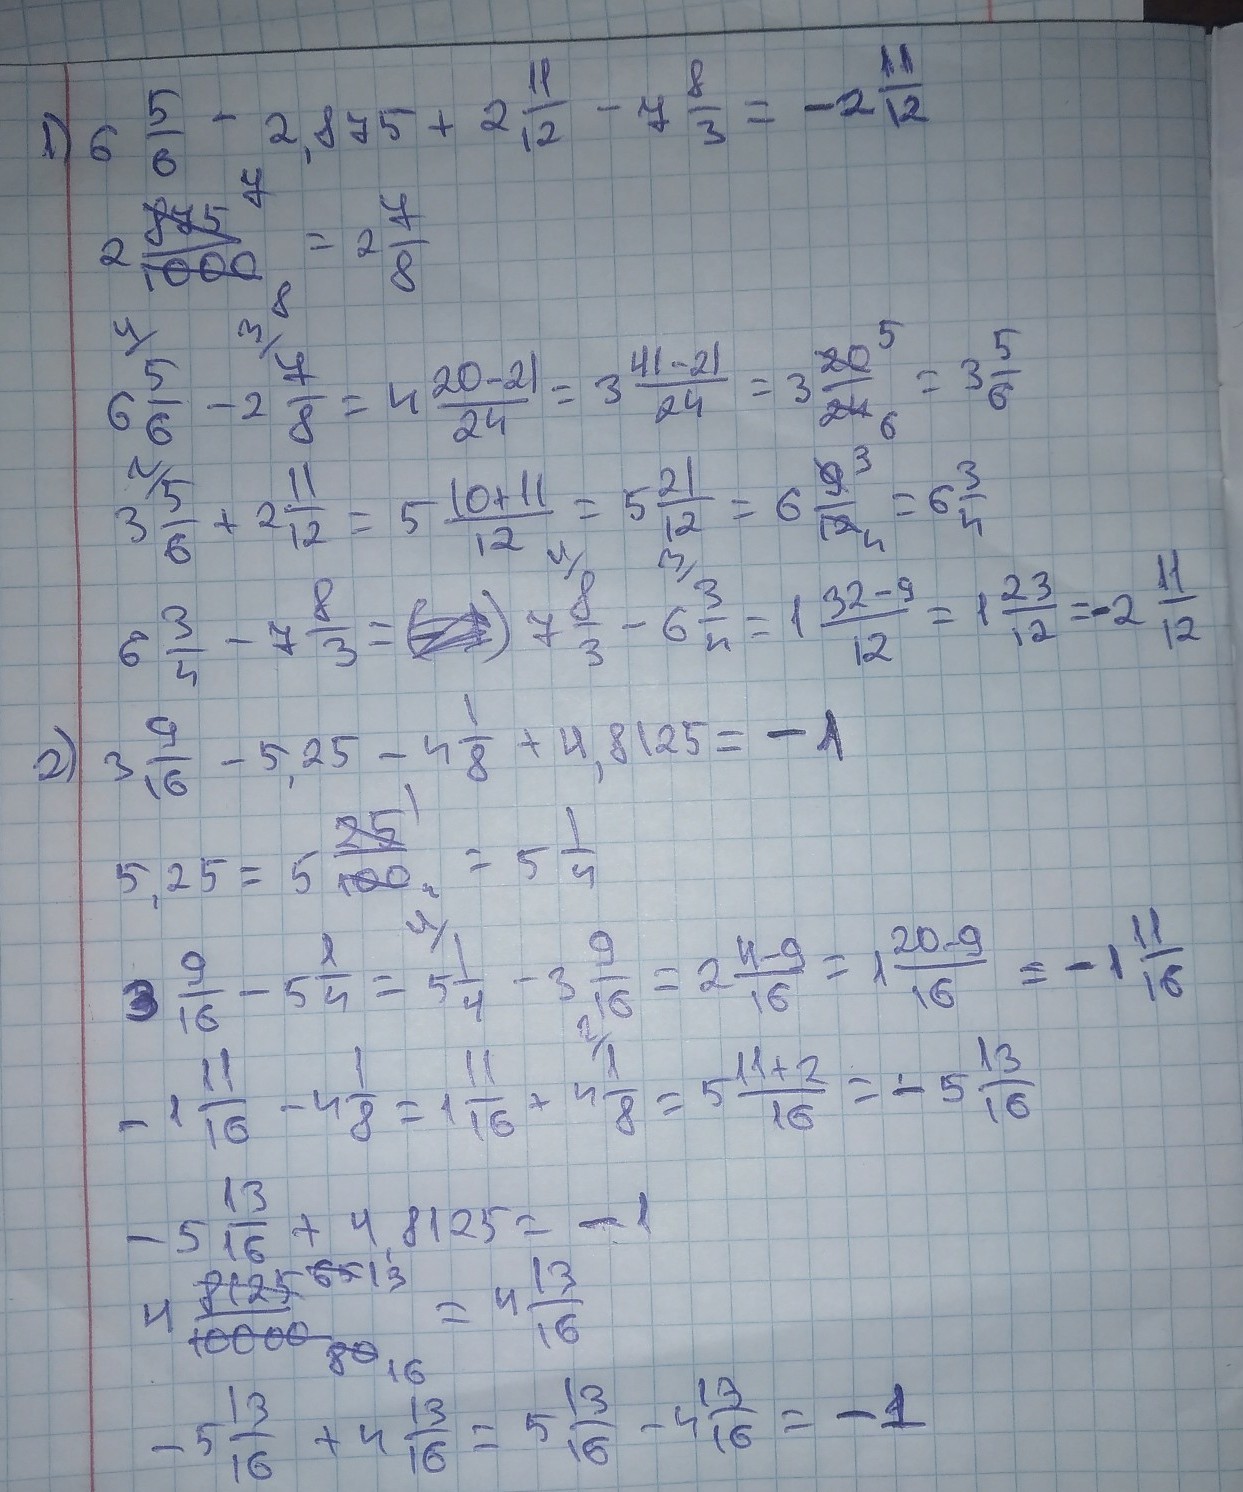 1) 6 5/6 - 2,875 + 2 11/12 - 7 8/3 = -2 11/12
2 875/1000 7/8 = 2 7/8
4/ 6 5/6 - 3/ 2 7/8 = 4 20-21/24 = 3 41-21/24 = 3 20/24 5/6 = 3 5/6
2/ 3 5/6 + 2 11/12 = 5 10+11/12 = 5 21/12 = 6 9/12 3/4 = 6 3/4
6 3/4 - 7 8/3 = ( ) 4/ 7 8/3 - 3/ 6 3/4 = 1 32-9/12 = 1 23/12 = -2 11/12
2) 3 9/16 - 5,25 - 4 1/8 + 4,8125 = -1
5,25 = 5 25/100 1/4 = 5 1/4
3 9/16 - 5 1/4 = 4/ 5 1/4 - 3 9/16 = 2 4-9/16 = 1 20-9/16 = -1 11/16
-1 11/16 - 4 1/8 = 1 11/16 + 2/ 4 1/8 = 5 11+2/16 = -5 13/16
-5 13/16 + 4,8125 = -1
4 8125/10000 65/80 13/16 = 4 13/16
-5 13/16 + 4 13/16 = 5 13/16 - 4 13/16 = -1